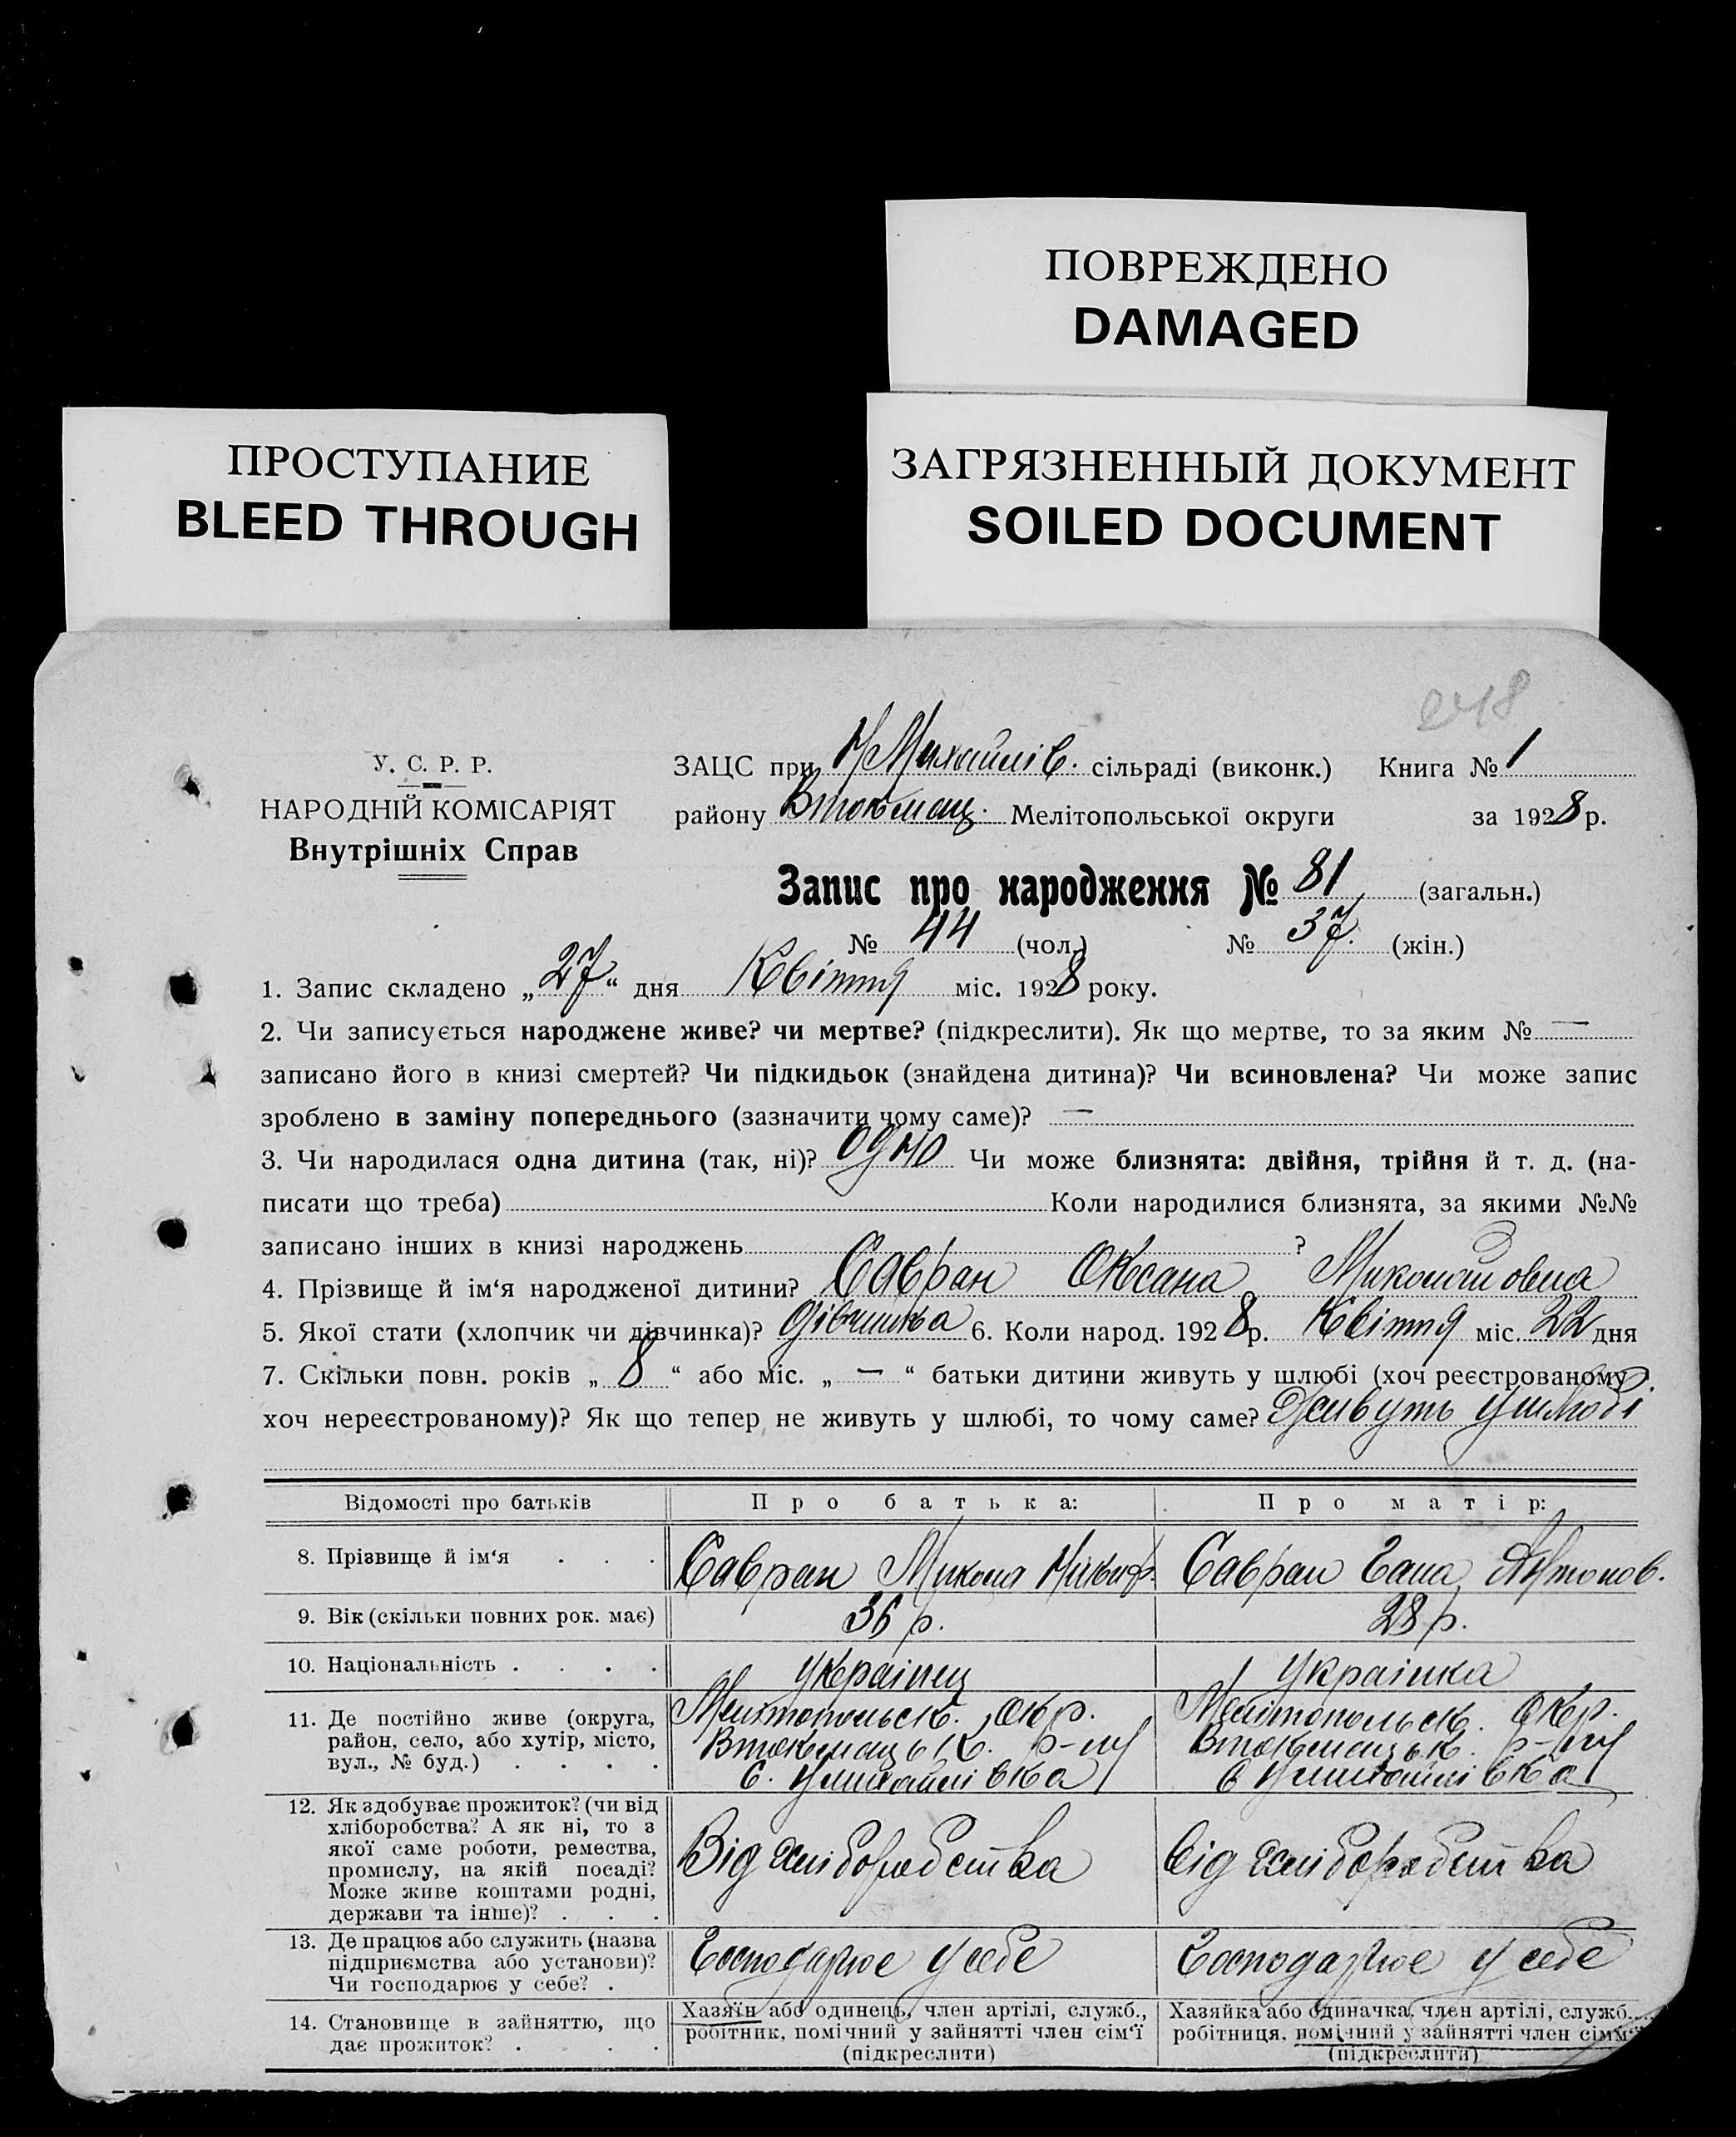 ПОВРЕЖДЕНО
DAMAGED
ПРОСТУПАНИЕ
BLEED THROUGH
ЗАГРЯЗНЕННЫЙ ДОКУМЕНТ
SOILED DOCUMENT
У. С. Р. Р.
НАРОДНІЙ КОМІСАРІЯТ
Внутрішніх Справ
ЗАЦС при Н Михайлів. сільраді (виконк.) Книга № 1
району Втокмац. Мелітопольської округи за 1928 р.
Запис про народження № 81 (загальн.)
№ 44 (чол.) № 37. (жін.)
1. Запис складено „27“ дня Квітня міс. 1928 року.
2. Чи записується народжене живе? чи мертве? (підкреслити). Як що мертве, то за яким № —
записано його в книзі смертей? Чи підкидьок (знайдена дитина)? Чи всиновлена? Чи може запис
зроблено в заміну попереднього (зазначити чому саме)? —
3. Чи народилася одна дитина (так, ні)? одно Чи може близнята: двійня, трійня й т. д. (на-
писати що треба) Коли народилися близнята, за якими №№
записано інших в книзі народжень ?
4. Прізвище й ім‘я народженої дитини? Савран Оксана Миколайовна
5. Якої стати (хлопчик чи дівчинка)? дівчинка 6. Коли народ. 1928 р. Квітня міс. 22 дня
7. Скільки повн. років „8“ або міс. „—“ батьки дитини живуть у шлюбі (хоч реєстрованому
хоч нереєстрованому)? Як що тепер не живуть у шлюбі, то чому саме? Живуть у шлюбі
Відомості про батьків Про батька: Про матір:
8. Прізвище й ім‘я . . . Савран Микола Никиф. Савран Гана Антонов.
9. Вік (скільки повних рок. має) 36 р. 28 р.
10. Національність . . . . українец українка
11. Де постійно живе (округа, Мелітопольськ. окр. Мелітопольськ. окр.
район, село, або хутір, місто, Втокмацьк. р-ну Втокмацьк. р-ну
вул., № буд.) . . . .
12. Як здобуває прожиток? (чи від
хліборобства? А як ні, то з
якої саме роботи, ремества, Від хліборобства від хліборобства
промислу, на якій посаді?
Може живе коштами родні,
держави та інше)? . . .
13. Де працює або служить (назва
підприємства або установи)? Господарює у себе Господарює у себе
Чи господарює у себе? .
14. Становище в зайняттю, що Хазяїн або одинець, член артілі, служб., Хазяйка або одиначка, член артілі, служб.,
дає прожиток? . . . робітник, помічний у зайнятті член сім‘ї робітниця, помічний у зайнятті член сімм‘ї
(підкреслити) (підкреслити)